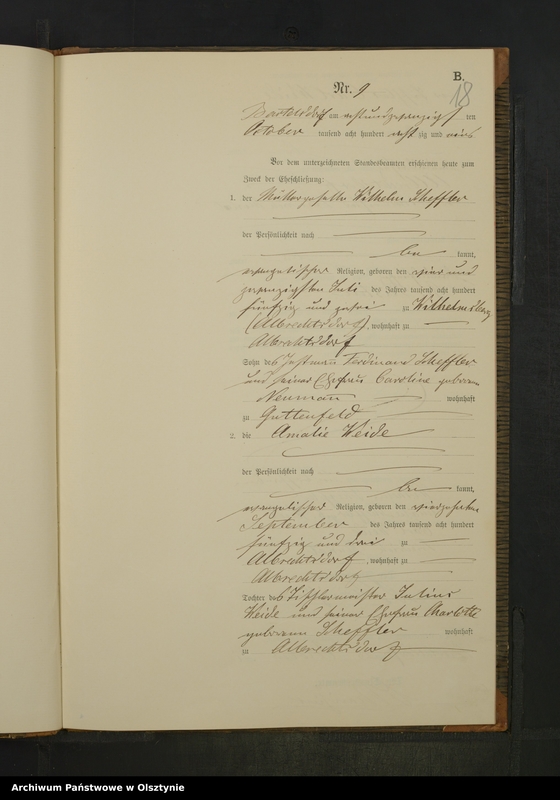 B.
18
Nr. 9
Bartelsdorf am achtundzwanzigsten
October tausend acht hundert acht zig und
Vor dem unterzeichneten Standesbeamten erschienen heute zum
Zweck der Eheschließung:
1. der Müllergeselle Wilhelm Scheffler
der Persönlichkeit nach
be kannt,
evangelischer Religion, geboren den vier und
zwanzigsten Juli des Jahres tausend acht hundert
fünfzig und zwei zu Wilhelmsberg
(Albrechtsdorf), wohnhaft zu
Albrechtsdorf
Sohn des Ferdinand Scheffler
und seiner Ehefrau Caroline geborenen
Neumann wohnhaft
zu Guttenfeld
2. die Amalie Weide
der Persönlichkeit nach
be kannt,
evangelischer Religion, geboren den vierzehnten
September des Jahres tausend acht hundert
fünfzig und drei zu
Albrechtsdorf, wohnhaft zu
Albrechtsdorf
Tochter des Tischlermeister Julius
Weide und seiner Ehefrau Charlotte
geborenen Scheffler wohnhaft
zu Albrechtsdorf
Archiwum Państwowe w Olsztynie